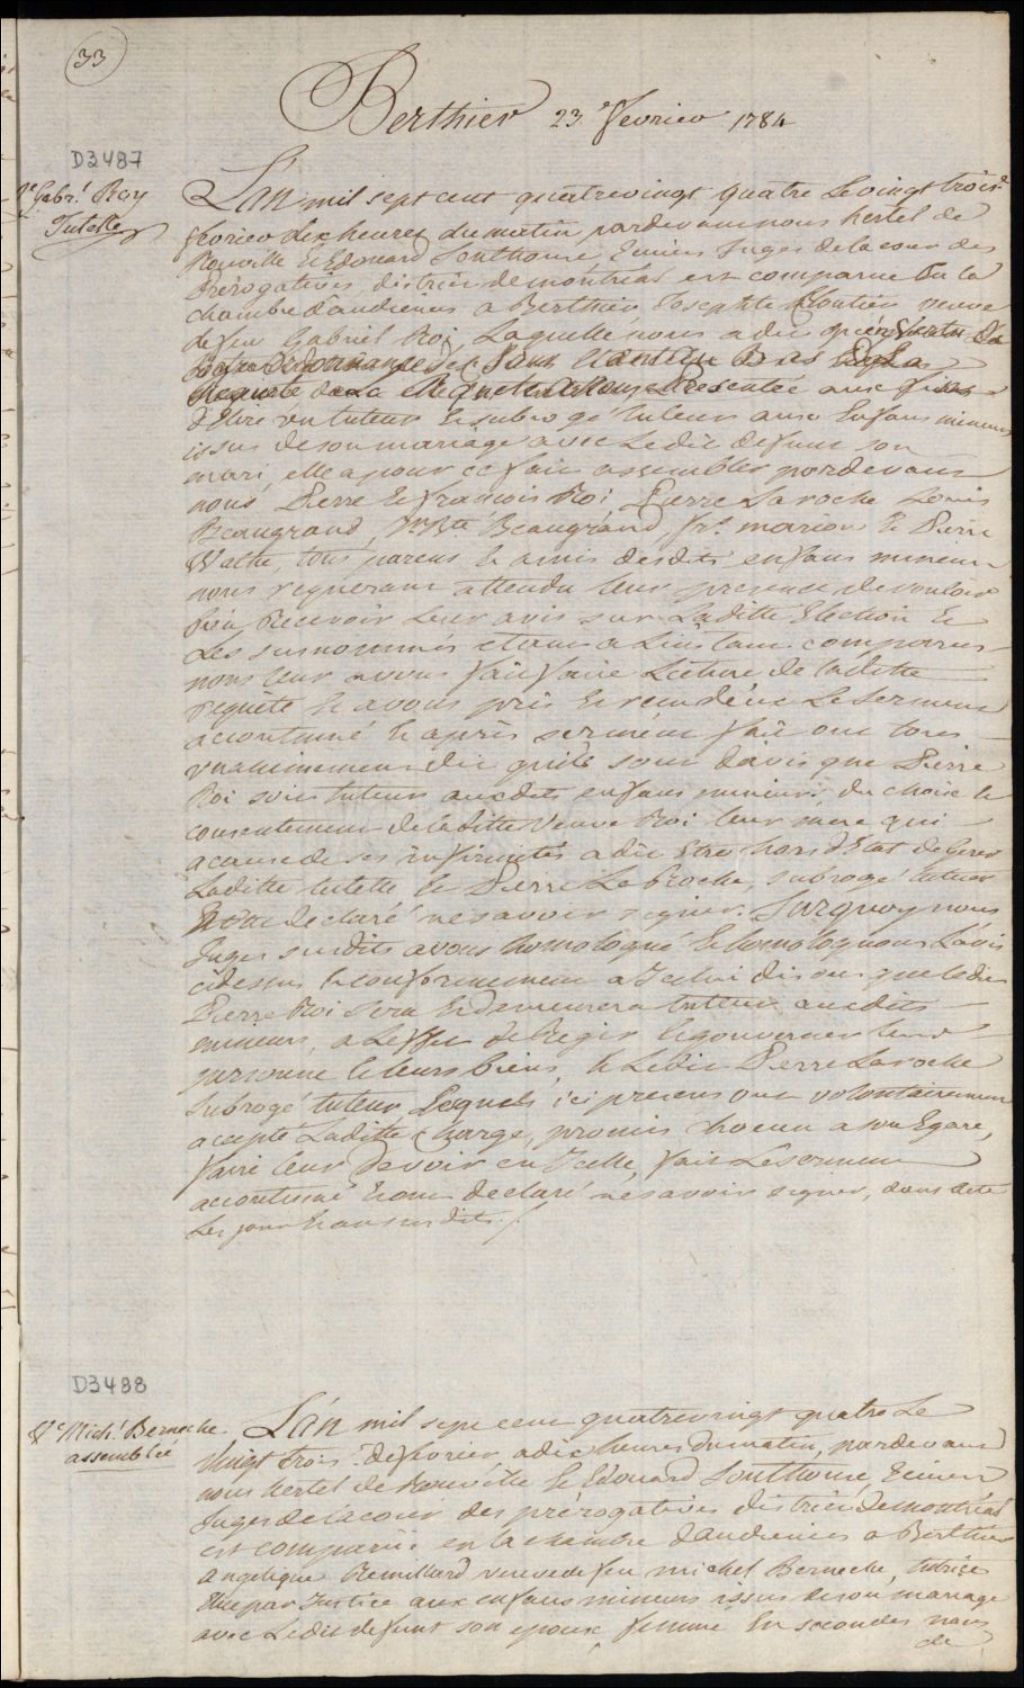 33
Berthier 23.e fevrier 1784
D3487
Ve Gabrl. Roy
Tutelle
L'An mil sept cent quatrevingt quatre Le vingt trois.e
fevrier dix heures du matin pardevant nous hertel de
Rouville & Edouard Southouse Ecuiers Juges de la cour des
Prerogatives, district de montreal est comparue En la
chambre d'audiences a Berthier Josephte Cloutier veuve
de feu Gabriel Roi, Laquelle nous a dit qu'en Vertu De
Notre Ordonnance de
Requete a Nous Presentée aux fins
d'Elire un tuteur & subrogé tuteur aux Enfans mineurs
issus de son mariage avec Ledit defunt son
mari, elle a pour ce fait assembler pardevant
nous Pierre & françois Roi Pierre Laroche Louis
Beaugrand, Jn. Bte. Beaugrand, frs. marion & Pierre
Walthe, tous parens & amis desdits enfans mineurs
nous requerant attendu leur presence de vouloir
bien Recevoir leur avis sur Laditte Election &
Les susnommés etant a L'instant comparus
nous leur avons fait faire Lecture de laditte
requête & avons pris & reçu d'eux Le Serment
accoutumé & après serment fait ont tous
unanimement dit qu'ils sont d'avis que Pierre
Roi soit tuteur auxdits enfans mineurs du choix &
consentement de laditte Veuve Roi leur mere qui
a cause de ses infirmités a dit Etre hors d'Etat de Gerer
Laditte tutelle & Pierre La Roche, subrogé tuteur
& ont declaré ne savoir signer. Surquoy nous
Juges susdits avons homologué & homologuons L'avis
cidessus & conformement a Icelui disons que ledit
Pierre Roi sera & demeurera tuteur auxdits
mineurs, a L'effet de Regir & gouverner leurs
personne & leurs biens, & Ledit Pierre Laroche
Subrogé tuteur, Lequels ici presens ont volontairement
accepté Laditte Charge, promis chacun a son Egard,
faire leur Devoir en Icelle, fait Le serment
accoutumé & ont declaré ne savoir signer, dans cete
Les jour & an susdits ./.
D3488
Ve Michl. Bernache
assemblée
L'An mil sept cent quatrevingt quatre Le
Vingt trois.e de fevrier a dix heures du matin, pardevant
nous hertel de Rouville & Edouard Southouse, Ecuiers
Juges de la cour des prerogatives district de montréal
est comparüe en la chambre d'audiences a Berthier
Angelique Remillard veuve de feu michel Berneche, tutrice
Elue par Justice aux enfans mineurs issus de son mariage
avec Ledit defunt son epoux, femme En secondes noces
de